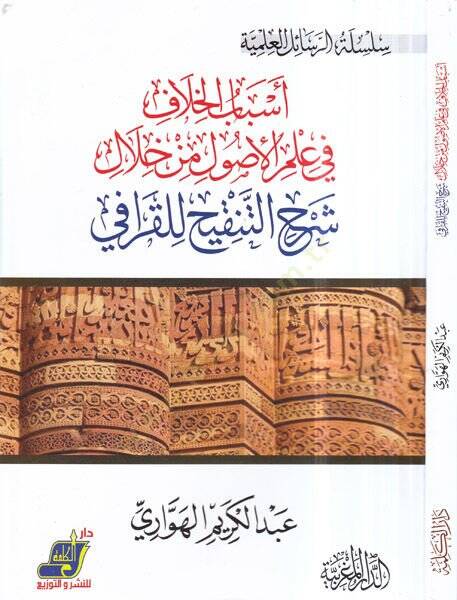 سلسلة الرسائل العلمية
أسباب الخلاف
في علم الأصول من خلال
شرح التنقيح للقرافي
عبد الكريم الهواري
الدار المغربية
دار
الكلمة
للنشر و التوزيع
أسباب الخلاف في علم الأصول من خلال شرح التنقيح للقرافي
عبد الكريم الهواري
دار الكلمة